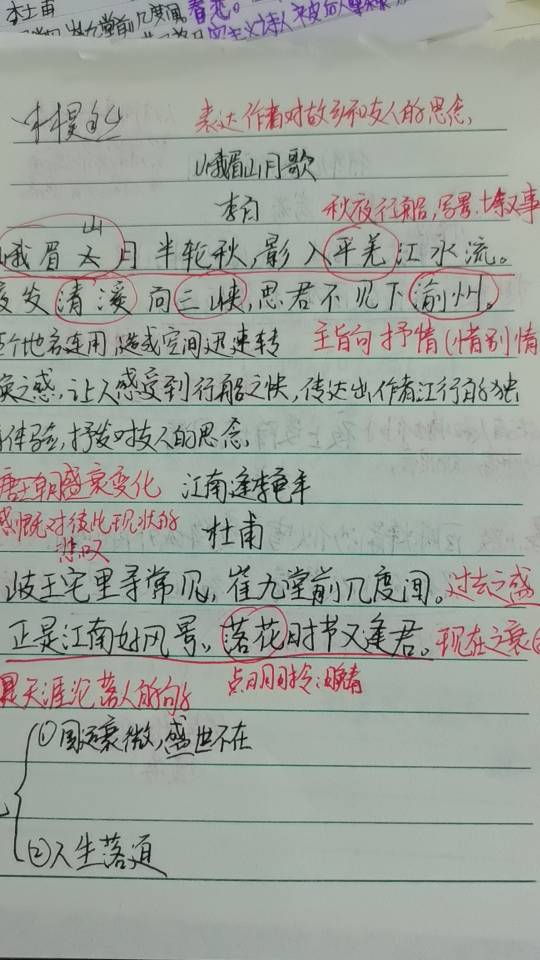 李白甫
表达作者对故乡和友人的思念
峨眉山月歌
李白
秋夜行船,写景,叙事
山
峨眉太月半轮秋,影入平羌江水流。
夜发清溪向三峡,思君不见下渝州。
个地名连用,造成空间迅速转
主旨句 抒情(惜别情
换之感,让人感受到行船之快,传达出作者江行的独
体验,抒发对友人的思念,
唐王朝盛衰变化
江南逢李龟年
感慨对彼此现状的
悲叹
杜甫
岐王宅里寻常见,崔九堂前几度闻。过去之盛
正是江南好风景。落花时节又逢君。现在之衰
是天涯沦落人的向
点明时令:暮春
①国运衰微,盛世不在
②人生落道